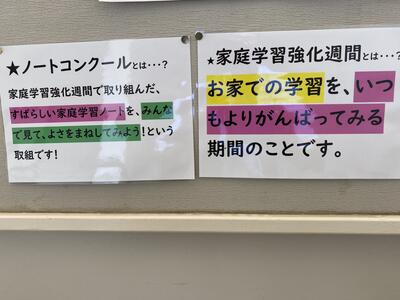 ★ノートコンクールとは・・・？
家庭学習強化週間で取り組んだ、
すばらしい家庭学習ノートを、みんな
で見て、よさをまねしてみよう！という
取組です！
★家庭学習強化週間とは・・・？
お家での学習を、いつ
もよりがんばってみる
期間のことです。